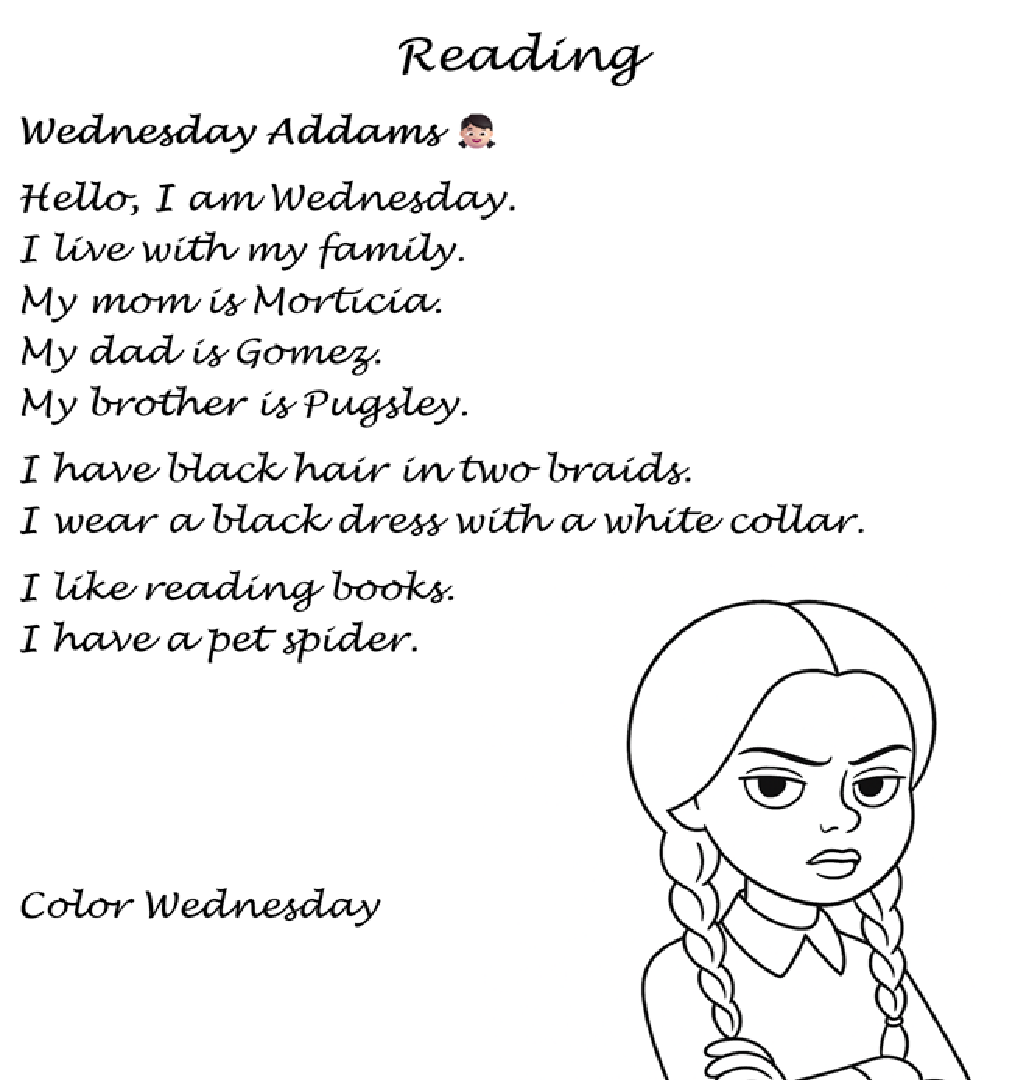 Reading
Wednesday Addams 👧🏻
Hello, I am Wednesday.
I live with my family.
My mom is Morticia.
My dad is Gomez.
My brother is Pugsley.
I have black hair in two braids.
I wear a black dress with a white collar.
I like reading books.
I have a pet spider.
Color Wednesday